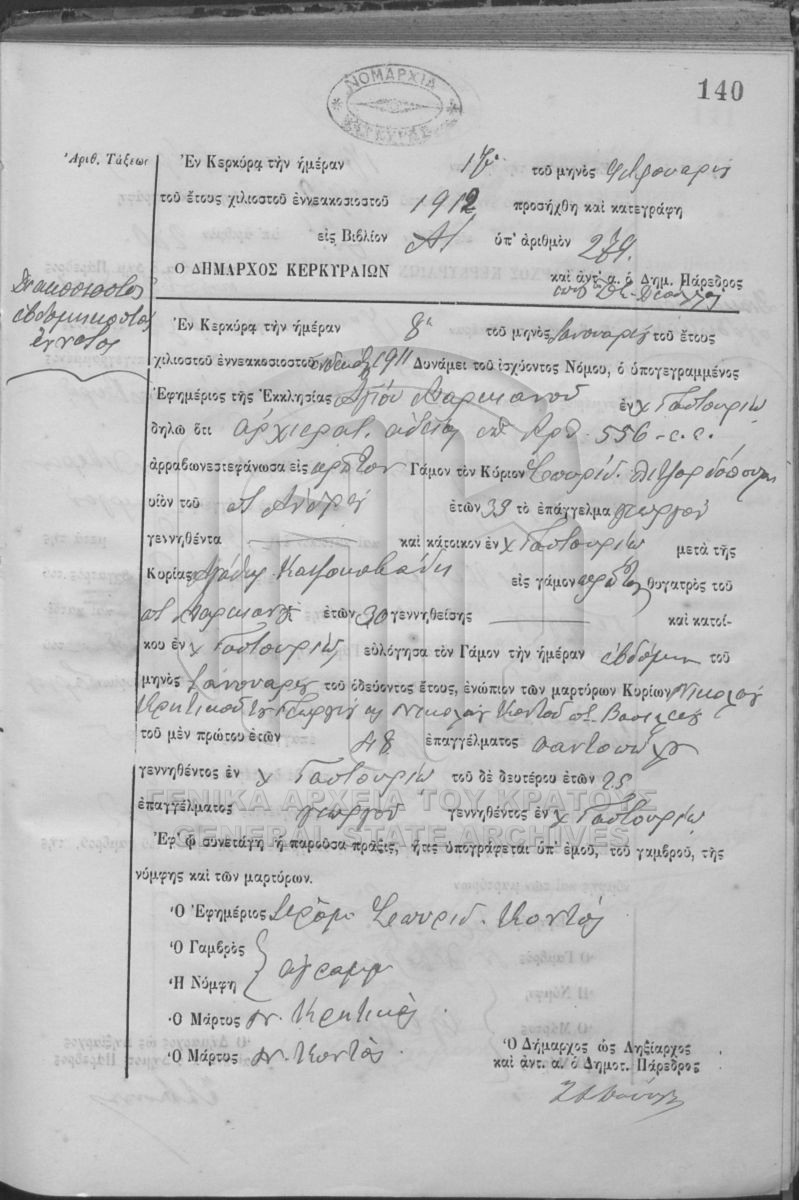 ΝΟΜΑΡΧΙΑ
ΚΕΡΚΥΡΑΣ
140
Ἀριθ. Τάξεως
Ἐν Κερκύρᾳ τὴν ἡμέραν 17ην τοῦ μηνὸς Φεβρουαρίου
τοῦ ἔτους χιλιοστοῦ ἐννεακοσιοστοῦ 1912 προσήχθη καὶ κατεγράφη
εἰς Βιβλίον Α! ὑπ' ἀριθμὸν 279.
Ο ΔΗΜΑΡΧΟΣ ΚΕΡΚΥΡΑΙΩΝ καὶ ἀντ' α. ὁ Δημ. Πάρεδρος
Διακοσιοστὸς
ἑβδομηκοστὸς
ἔννατος
Ἐν Κερκύρᾳ τὴν ἡμέραν 8η τοῦ μηνὸς Ἰανουαρίου τοῦ ἔτους
χιλιοστοῦ ἐννεακοσιοστοῦ ἑνδεκάτου 1911 Δυνάμει τοῦ ἰσχύοντος Νόμου, ὁ ὑπογεγραμμένος
Ἐφημέριος τῆς Ἐκκλησίας Ἁγίου Μαρκιανοῦ ἐν χ Γαστουρίῳ
δηλῶ ὅτι ἀρχιερατ. ἀδείᾳ ὑπ' ἀρθ. 556 - ε. ἔ.
ἀρραβωνεστεφάνωσα εἰς πρῶτον Γάμον τὸν Κύριον Σπυρίδ.
υἱὸν τοῦ π. Ἀνδρέου ἐτῶν 39 τὸ ἐπάγγελμα γεωργὸν
γεννηθέντα καὶ κάτοικον ἐν χ Γαστουρίῳ μετὰ τῆς
Κυρίας Ἀγάθης εἰς γάμον πρῶτον θυγατρὸς τοῦ
π. Μαρκιανοῦ ἐτῶν 30 γεννηθείσης καὶ κατοί-
κου ἐν χ Γαστουρίῳ, εὐλόγησα τὸν Γάμον τὴν ἡμέραν ἑβδόμην τοῦ
μηνὸς Ἰανουαρίου τοῦ ὁδεύοντος ἔτους, ἐνώπιον τῶν μαρτύρων Κυρίων Νικολάου
Κρητικοῦ τοῦ Γεωργίου καὶ Νικολάου Κοντοῦ π. Βασιλείου
τοῦ μὲν πρώτου ἐτῶν 48 ἐπαγγέλματος παντοπώλου
γεννηθέντος ἐν χ Γαστουρίῳ τοῦ δὲ δευτέρου ἐτῶν 25
ἐπαγγέλματος γεωργοῦ γεννηθέντος ἐν χ Γαστουρίῳ
ΓΕΝΙΚΑ ΑΡΧΕΙΑ ΤΟΥ ΚΡΑΤΟΥΣ
GENERAL STATE ARCHIVES
Ἐφ' ᾧ συνετάγη ἡ παροῦσα πρᾶξις, ἥτις ὑπογράφεται ὑπ' ἐμοῦ, τοῦ γαμβροῦ, τῆς
νύμφης καὶ τῶν μαρτύρων.
Ὁ Ἐφημέριος Ἱερομ Σπυρίδ. Κοντός
Ὁ Γαμβρὸς
Ἡ Νύμφη ἀγράμμ.
Ὁ Μάρτυς Ν. Κρητικός
Ὁ Μάρτυς Ν. Κοντὸς.
Ὁ Δήμαρχος ὡς Ληξίαρχος
καὶ ἀντ. α. ὁ Δημοτ. Πάρεδρος